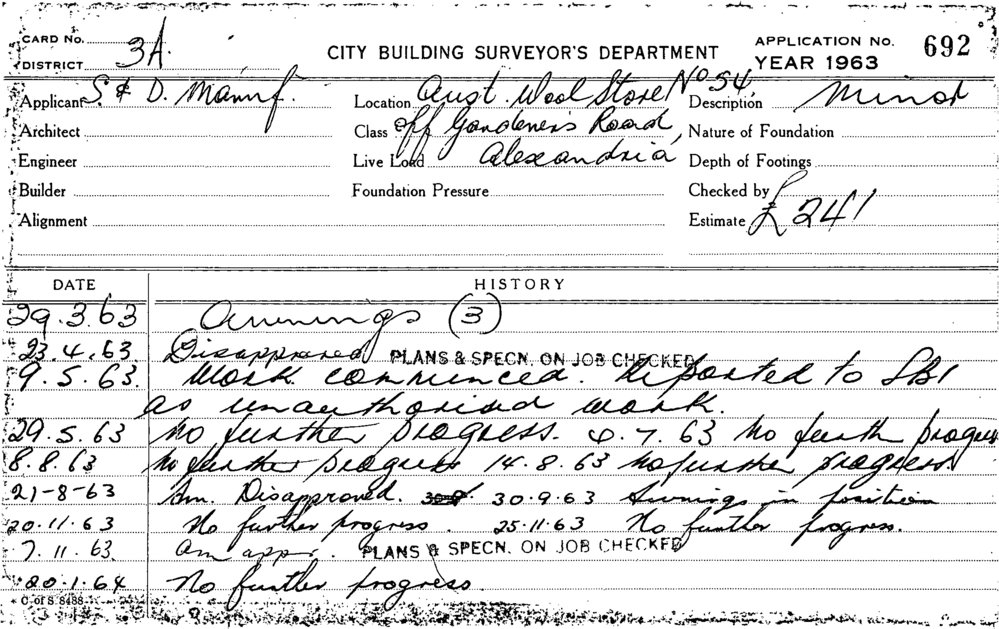 CARD No. 3A CITY BUILDING SURVEYOR'S DEPARTMENT APPLICATION No. 692
DISTRICT YEAR 1963
Applicant S & D. Manuf. Location Aust. Wool Store No 54 Description Minor
Architect Class off Gardeners Road, Nature of Foundation
Engineer Live Load Alexandria Depth of Footings
Builder Foundation Pressure Checked by
Alignment Estimate £241
DATE HISTORY
29.3.63 Awnings (3)
23.4.63. Disapproved PLANS & SPECN. ON JOB CHECKED
9.5.63. Work commenced. Reported to SBI
as unauthorised work.
29.5.63 No further progress. 4.7.63 No furth progress
8.8.63 No further progress 14.8.63 No further progress.
21-8-63 Am. Disapproved. 30.9.63 Awnings in position
20.11.63 No further progress. 25.11.63 No further progress.
7.11.63. Am appr. PLANS & SPECN. ON JOB CHECKED
20.1.64 No further progress
C. of S. 8488